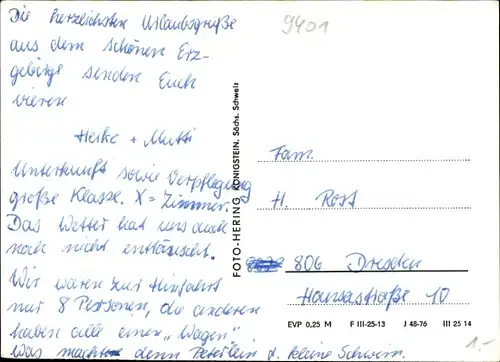 Die herzlichsten Urlaubsgrüße
aus dem schönen Erz-
gebirge senden Euch
vieren
Heike + Mutti
Unterkunft sowie Verpflegung
große Klasse. X = Zimmer.
Das Wetter hat uns auch
noch nicht enttäuscht.
Wir waren zur Hinfahrt
nur 8 Personen, die anderen
haben alle einen „Wagen".
Was macht denn Peterlein d. kleine Schwein.
9401
FOTO-HERING KÖNIGSTEIN, Sächs. Schweiz
Fam.
H. Rost
806 Dresden
Hansastraße 10
EVP 0,25 M F III-25-13 J 48-76 III 25 14
1.-